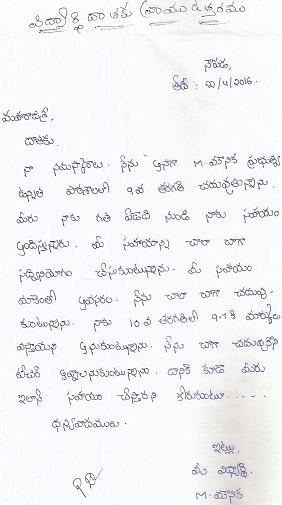 విద్యార్థి దాతకు వ్రాయు ఉత్తరము
నౌపడ,
తేది : 20/4/2016.
మహారాజశ్రీ,
దాతకు,
నా నమస్కారాలు. నేను అనగా M. మౌనిక ప్రభుత్వ
ఉన్నత పాఠశాలలో 9వ తరగతి చదువుతున్నాను.
మీరు నాకు గత ఏడాది నుండి నాకు సహాయం
అందిస్తున్నారు. మీ సహాయాన్ని చాలా బాగా
సద్వినియోగం చేసుకుంటున్నాను. మీ సహాయం
మాకెంతో అవసరం. నేను చాలా బాగా చదువు-
కుంటున్నాను. నాకు 10వ తరగతిలో 9.8 మార్కులు
వస్తాయని అనుకుంటున్నాను. నేను బాగా చదువుకొని
టీచర్ అవ్వాలనుకుంటున్నాను. దానికి కూడా మీరు
ఇలానే సహాయం చేస్తారని కోరుకుంటూ.....
ధన్యవాదములు.
ఇట్లు,
మీ విద్యార్థి,
M. మౌనిక